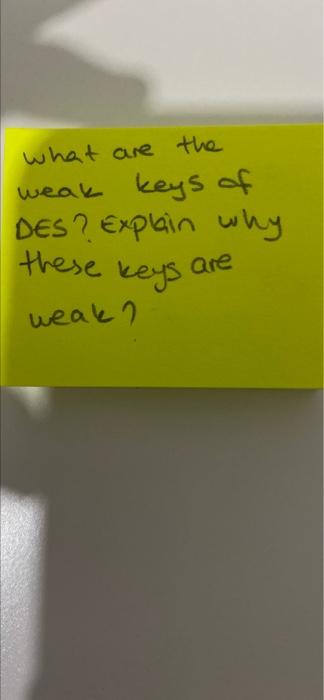 what are the
weak keys of
DES? Explain why
these keys are
weak?